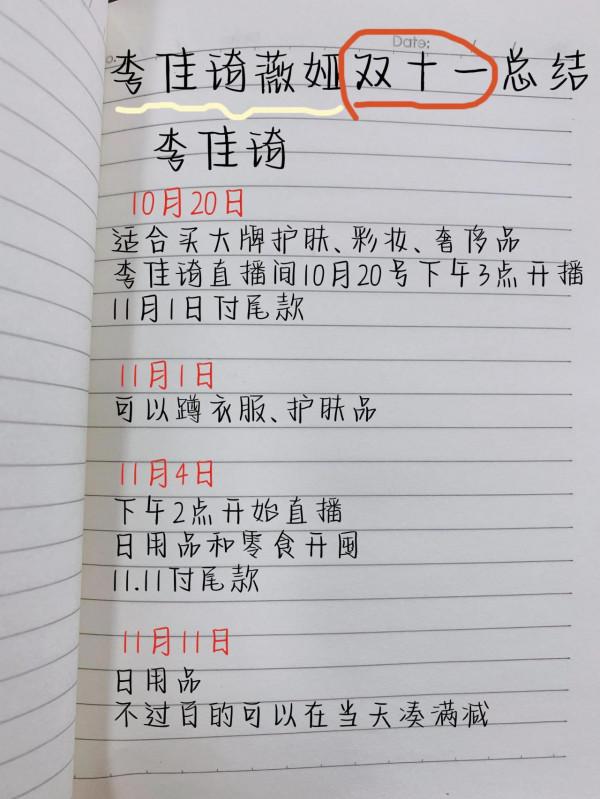 Date:
李佳琦薇娅双十一总结
李佳琦
10月20日
适合买大牌护肤、彩妆、奢侈品
李佳琦直播间10月20号下午3点开播
11月1日付尾款
11月1日
可以蹲衣服、护肤品
11月4日
下午2点开始直播
日用品和零食开囤
11.11付尾款
11月11日
日用品
不过百的可以在当天凑满减